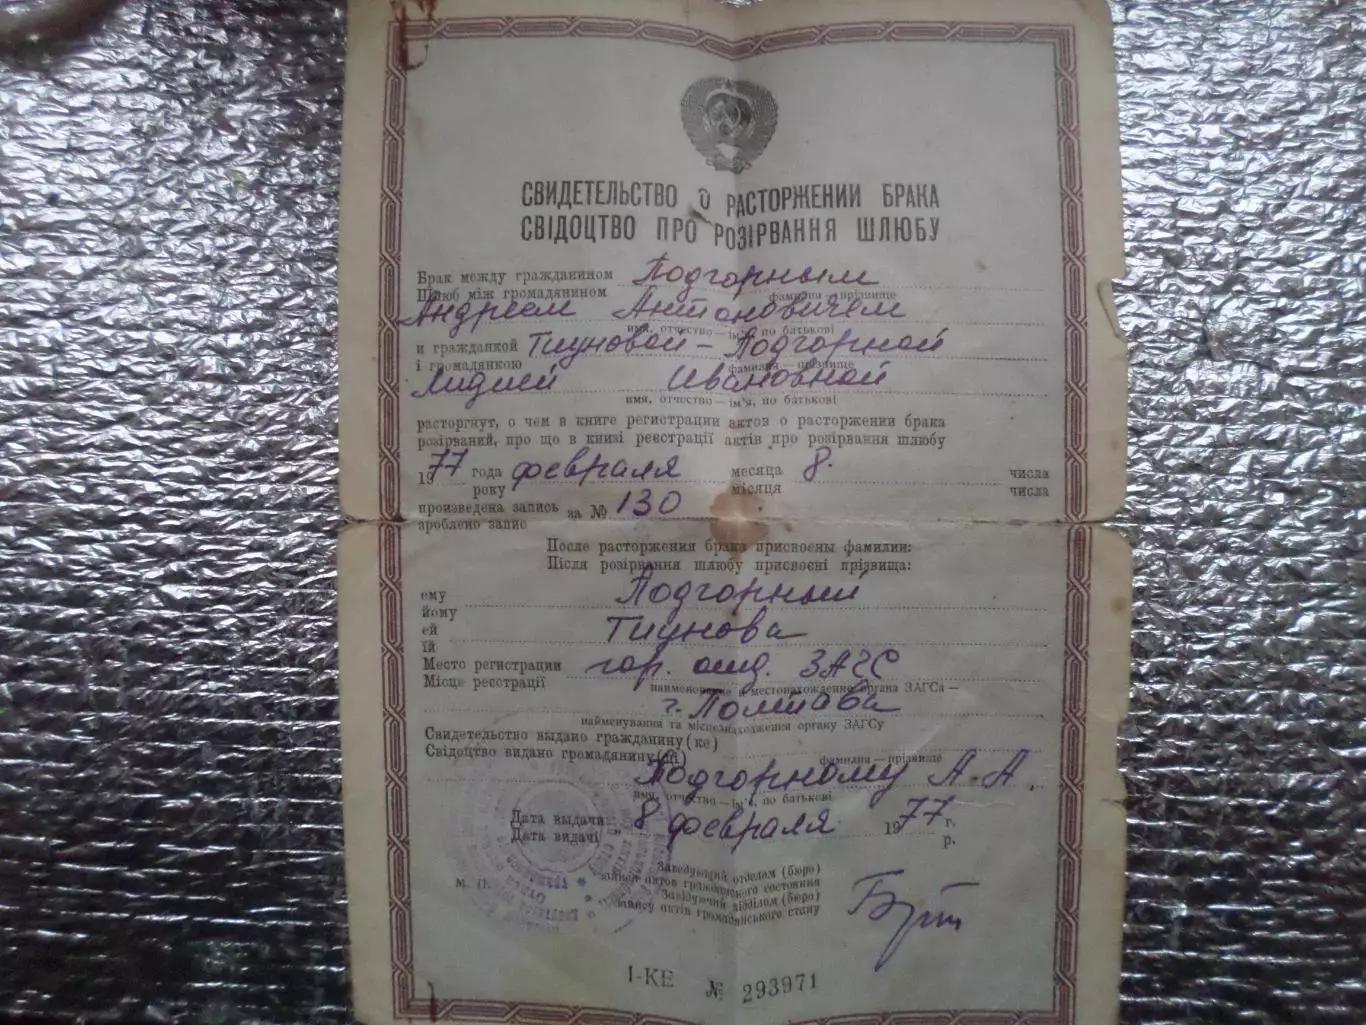 СВИДЕТЕЛЬСТВО О РАСТОРЖЕНИИ БРАКА
СВІДОЦТВО ПРО РОЗІРВАННЯ ШЛЮБУ
Брак между гражданином Подгорным
Шлюб між громадянином
фамилия — прізвище
Андреем Антоновичем
имя, отчество — ім'я, по батькові
и гражданкой Тиуновой-Подгорной
і громадянкою
фамилия — прізвище
Лидией Ивановной
имя, отчество — ім'я, по батькові
расторгнут, о чем в книге регистрации актов о расторжении брака
розірваний, про що в книзі реєстрації актів про розірвання шлюбу
1977 года февраля месяца 8. числа
року місяця числа
произведена запись за № 130
зроблено запис
После расторжения брака присвоены фамилии:
Після розірвання шлюбу присвоєні прізвища:
ему Подгорный
йому
ей Тиунова
їй
Место регистрации гор. отд. ЗАГС
Місце реєстрації
наименование и местонахождение органа ЗАГСа —
г. Полтава
найменування та місцезнаходження органу ЗАГСу
Свидетельство выдано гражданину (ке)
Свідоцтво видано громадянину (ці)
фамилия — прізвище
Подгорному А. А.
имя, отчество — ім'я, по батькові
Дата выдачи „8 февраля 1977 г.
Дата видачі р.
Заведующий отделом (бюро)
записи актов гражданского состояния
Завідуючий відділом (бюро)
запису актів громадянського стану
М. П.
I-КЕ № 293971